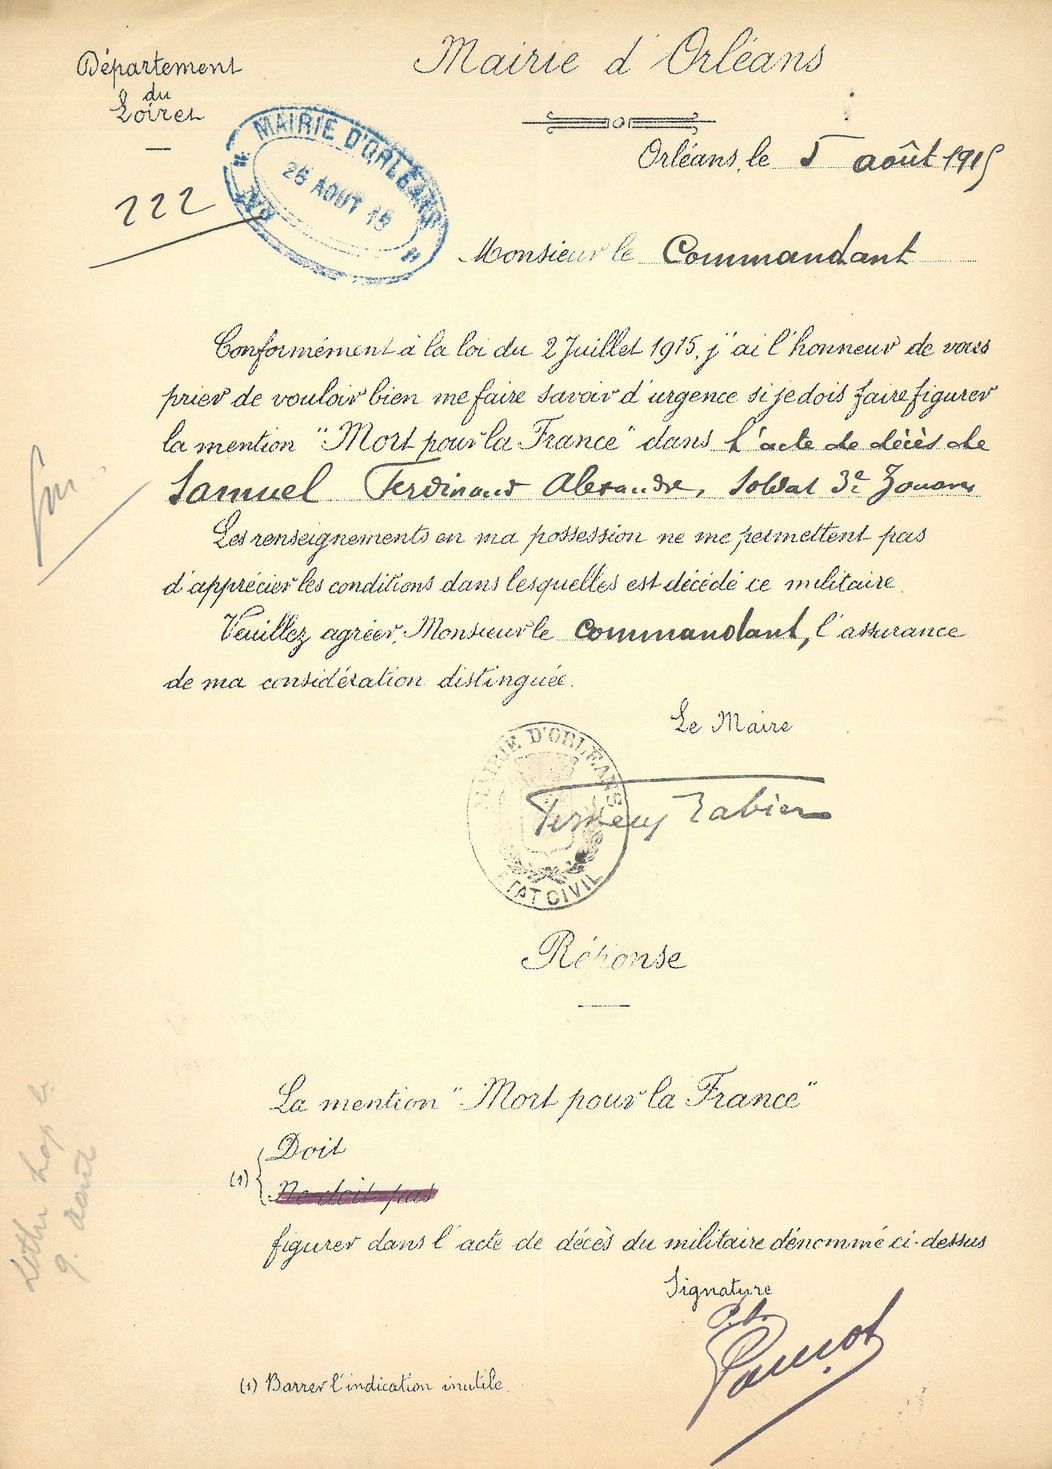 Département
du
Loiret
Mairie d'Orléans
MAIRIE D'ORLÉANS
26 AOUT 15
222
Orléans, le 5 août 1915
Monsieur le Commandant
Conformément à la loi du 2 Juillet 1915, j'ai l'honneur de vous
prier de vouloir bien me faire savoir d'urgence si je dois faire figurer
la mention "Mort pour la France" dans l'acte de décès de
Samuel Ferdinand Alexandre, soldat 3e Zouaves
Les renseignements en ma possession ne me permettent pas
d'apprécier les conditions dans lesquelles est décédé ce militaire.
Veuillez agréer, Monsieur le Commandant, l'assurance
de ma considération distinguée.
Le Maire
MAIRIE D'ORLÉANS
ETAT CIVIL
Réponse
La mention "Mort pour la France"
Doit
(1) {
Ne doit pas
figurer dans l'acte de décès du militaire dénommé ci-dessus
Signature
(1) Barrer l'indication inutile.
9. août